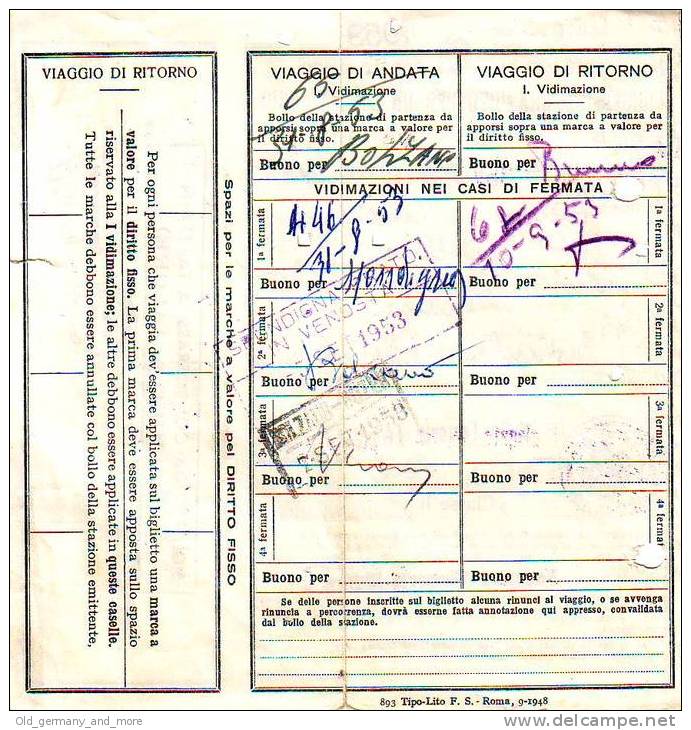 VIAGGIO DI RITORNO
Per ogni persona che viaggia dev'essere applicata sul biglietto una marca a
valore per il diritto fisso. La prima marca deve essere apposta sullo spazio
riservato alla I vidimazione; le altre debbono essere applicate in queste caselle.
Tutte le marche debbono essere annullate col bollo della stazione emittente,
Spazi per le marche a valore pel DIRITTO FISSO
VIAGGIO DI ANDATA
I. Vidimazione
Bollo della stazione di partenza da
apporsi sopra una marca a valore per
il diritto fisso.
Buono per
VIAGGIO DI RITORNO
I. Vidimazione
Bollo della stazione di partenza da
apporsi sopra una marca a valore per
il diritto fisso.
Buono per
VIDIMAZIONI NEI CASI DI FERMATA
1ª fermata
31-8-53
Buono per
1ª fermata
10-9-53
Buono per
2ª fermata
VENOSTA
1953
Buono per
2ª fermata
Buono per
3ª fermata
1953
Buono per
3ª fermata
Buono per
4ª fermata
Buono per
4ª fermata
Buono per
Se delle persone inscritte sul biglietto alcuna rinunci al viaggio, o se avvenga
rinuncia a percorrenza, dovrà esserne fatta annotazione qui appresso, convalidata
dal bollo della stazione.
893 Tipo-Lito F. S. - Roma, 9-1948
Old_germany_and_more
delcampe.net